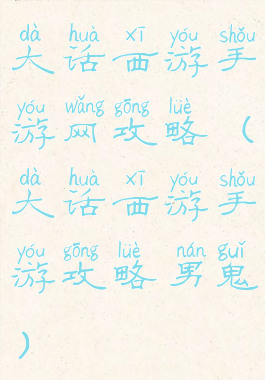 dà huà xī yóu shǒu
大话西游手
yóu wǎng gōng lüè
游网攻略（
dà huà xī yóu shǒu
大话西游手
yóu gōng lüè nán guǐ
游攻略男鬼
）